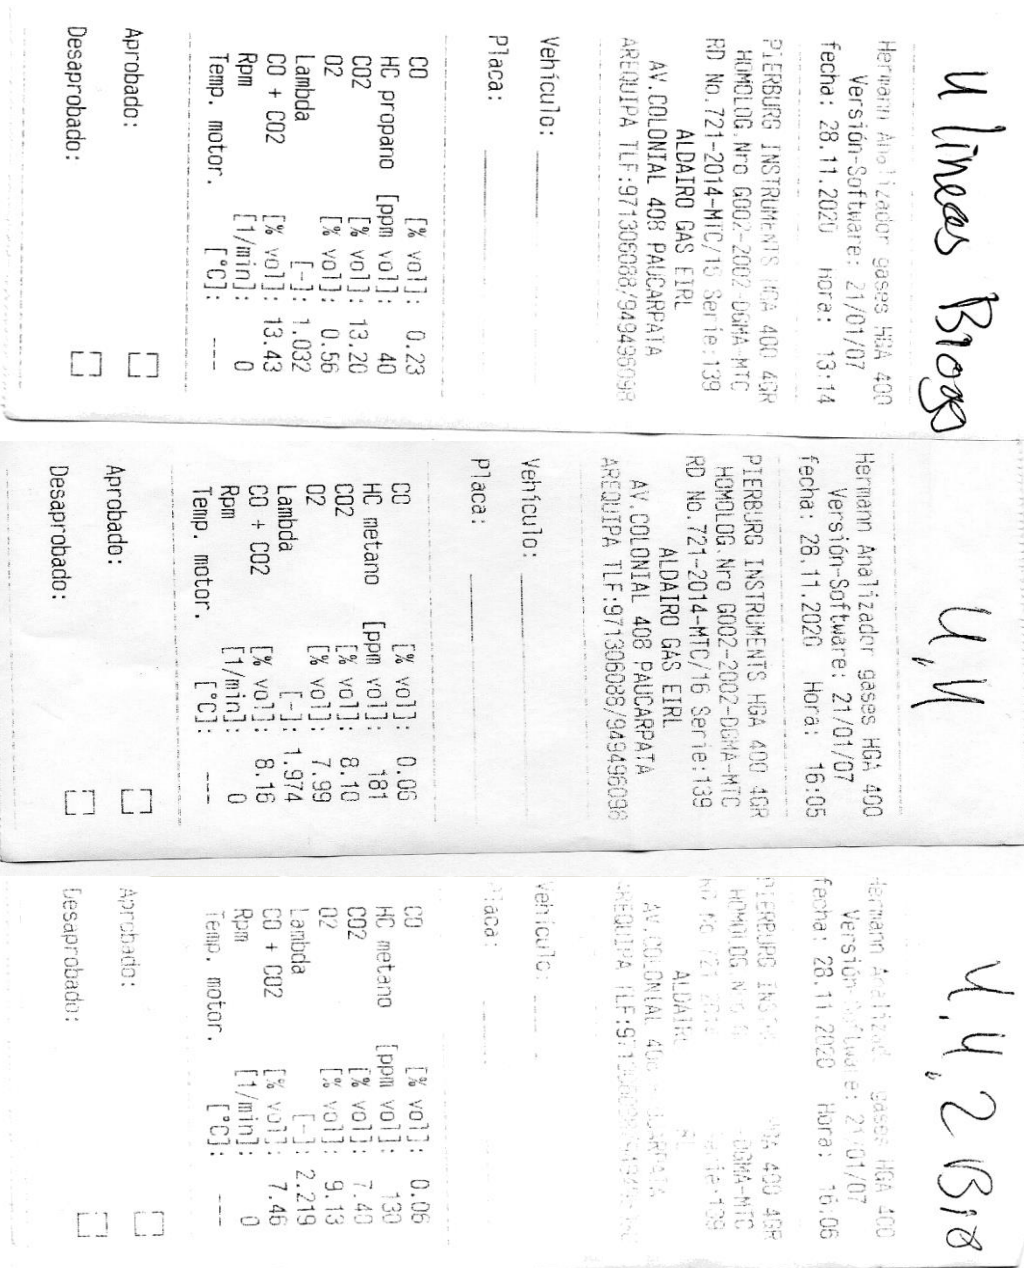 4 lineas Biogas
Hermann Analizador gases HGA 400
Versión-Software: 21/01/07
fecha: 28.11.2020 Hora: 13:14
PIERBURG INSTRUMENTS HGA 400 4GR
HOMOLOG.Nro G002-2002-DGMA-MTC
RD No.721-2014-MTC/16 Serie:139
ALDAIRO GAS EIRL
AV.COLONIAL 408 PAUCARPATA
AREQUIPA TLF:971306088/949496098
Vehículo:
Placa:
CO [% vol]: 0.23
HC propano [ppm vol]: 40
CO2 [% vol]: 13.20
O2 [% vol]: 0.56
Lambda [-]: 1.032
CO + CO2 [% vol]: 13.43
Rpm [1/min]: 0
Temp. motor. [°C]: ---
Aprobado:
Desaprobado:
4,4
Hermann Analizador gases HGA 400
Versión-Software: 21/01/07
fecha: 28.11.2020 Hora: 16:05
PIERBURG INSTRUMENTS HGA 400 4GR
HOMOLOG.Nro G002-2002-DGMA-MTC
RD No.721-2014-MTC/16 Serie:139
ALDAIRO GAS EIRL
AV.COLONIAL 408 PAUCARPATA
AREQUIPA TLF:971306088/949496098
Vehículo:
Placa:
CO [% vol]: 0.06
HC metano [ppm vol]: 181
CO2 [% vol]: 8.10
O2 [% vol]: 7.99
Lambda [-]: 1.974
CO + CO2 [% vol]: 8.16
Rpm [1/min]: 0
Temp. motor. [°C]: ---
Aprobado:
Desaprobado:
4.4, 2 Bio
Hermann gases HGA 400
Versión-Software: 21/01/07
fecha: 28.11.2020 Hora: 16:06
PIERBURG HGA 400 4GR
HOMOLOG DGMA-MTC
Serie:139
AV.COLONIAL
AREQUIPA
Vehículo:
Placa:
CO [% vol]: 0.06
HC metano [ppm vol]: 130
CO2 [% vol]: 7.40
O2 [% vol]: 9.13
Lambda [-]: 2.219
CO + CO2 [% vol]: 7.46
Rpm [1/min]: 0
Temp. motor. [°C]: ---
Aprobado:
Desaprobado: